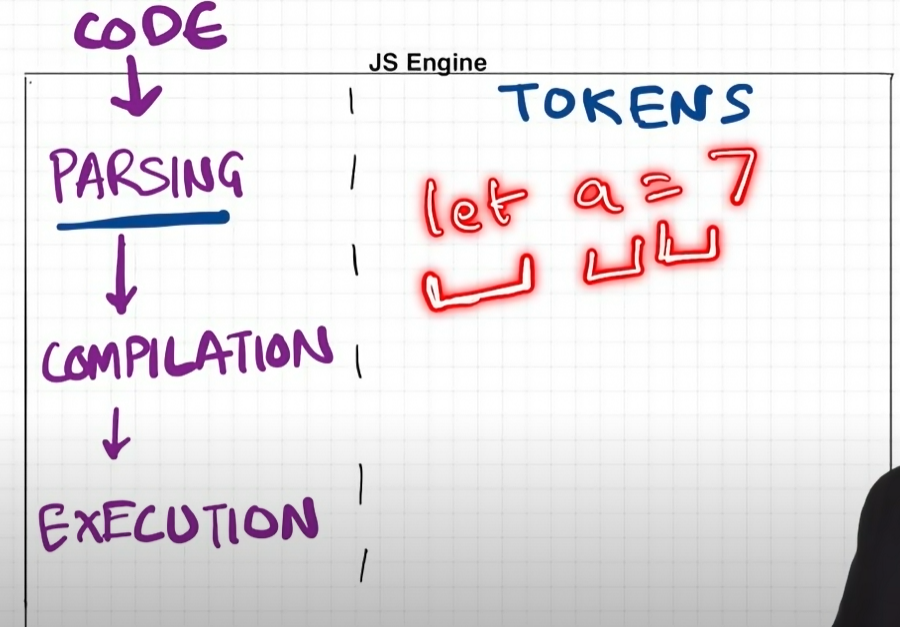 CODE
JS Engine
PARSING
COMPILATION
EXECUTION
TOKENS
let a = 7